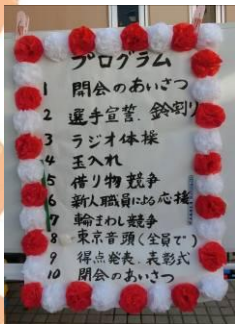 プログラム
1 開会のあいさつ
2 選手宣誓、鈴割り
3 ラジオ体操
4 玉入れ
5 借り物競争
6 新人職員による応援
7 輪まわし競争
8 東京音頭(全員で)
9 得点発表、表彰式
10 閉会のあいさつ